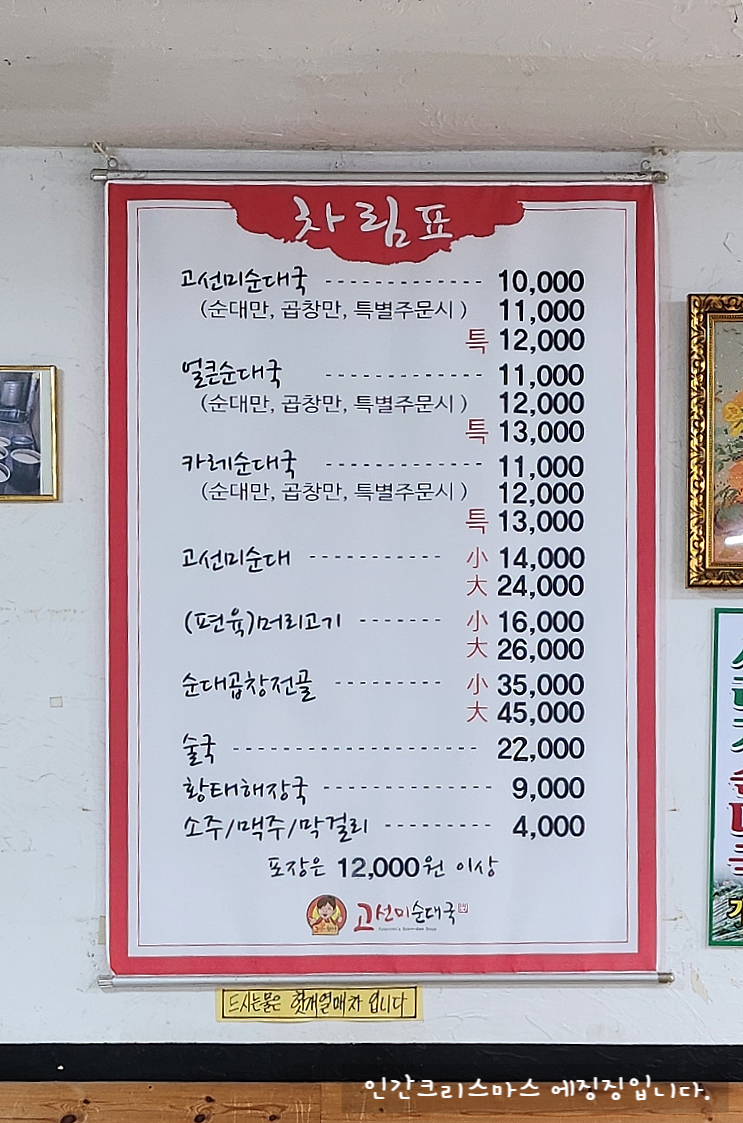 차림표
고선미순대국 ------------- 10,000
(순대만, 곱창만, 특별주문시) 11,000
특 12,000
얼큰순대국 ------------- 11,000
(순대만, 곱창만, 특별주문시) 12,000
특 13,000
카레순대국 ------------- 11,000
(순대만, 곱창만, 특별주문시) 12,000
특 13,000
고선미순대 ----------- 小 14,000
大 24,000
(편육)머리고기 ------- 小 16,000
大 26,000
순대곱창전골 --------- 小 35,000
大 45,000
술국 -------------------- 22,000
황태해장국 -------------- 9,000
소주/맥주/막걸리 --------- 4,000
포장은 12,000원 이상
고선미순대국
드시는물은 헛개열매차 입니다
인간크리스마스 에징징입니다.